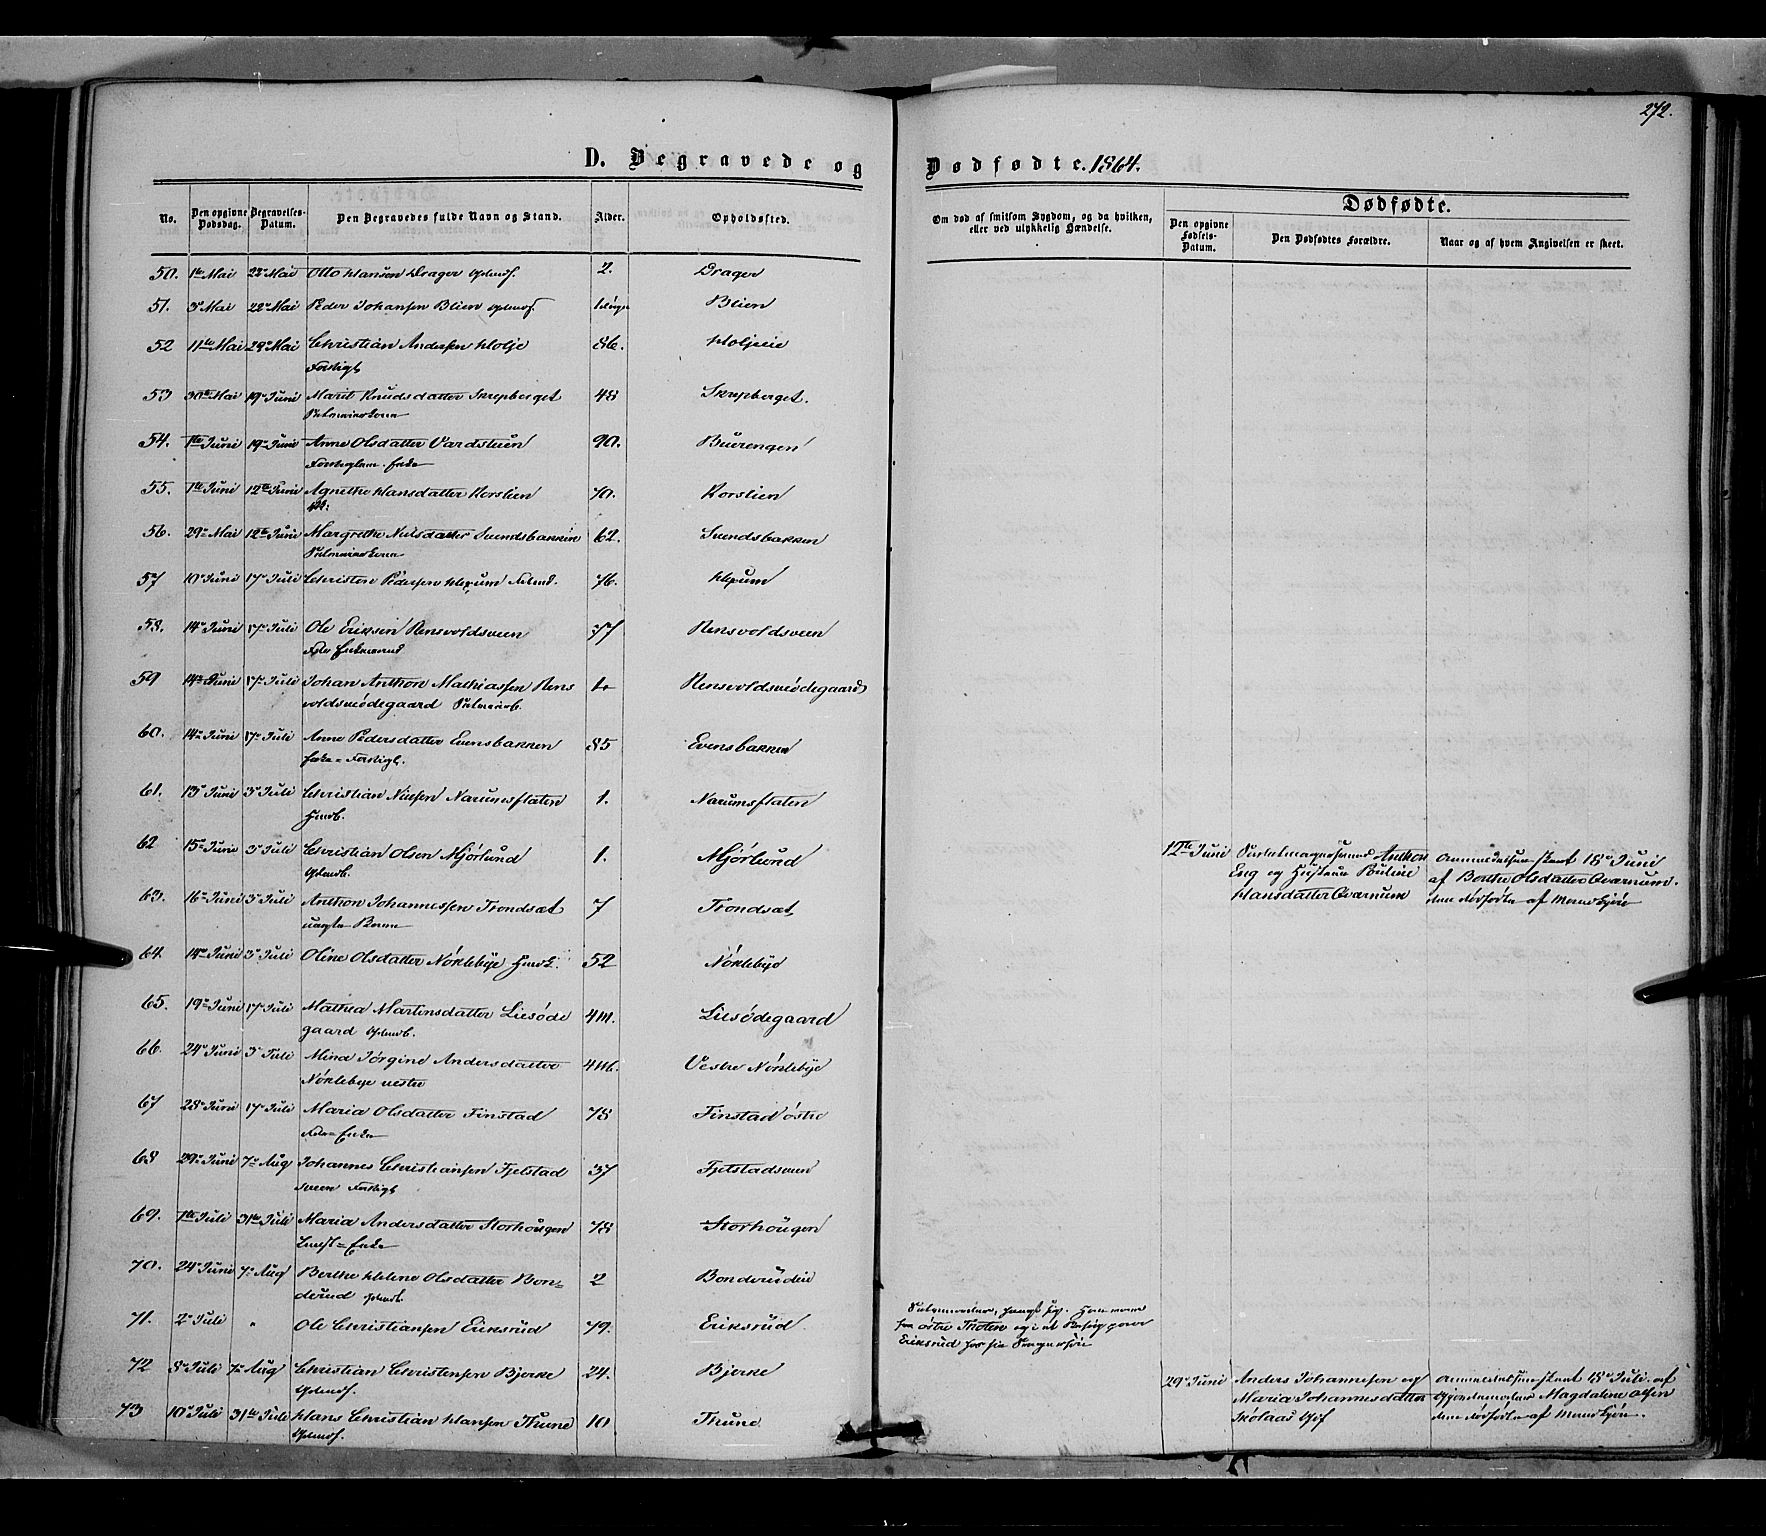 272.
D. Begravede og Dødfødte. 1864.
No. Den opgivne Dødsdag. Begravelses-Datum. Den Begravedes fulde Navn og Stand. Alder. Opholdssted.
Om død af smitsom Sygdom, og da hvilken, eller ved ulykkelig Hændelse.
Dødfødte.
Den opgivne Fødsels-Datum. Den Dødfødtes Forældre. Naar og af hvem Angivelsen er skeet.
50. 1te Mai 28de Mai Otto Hansen Drager 2. Drager
51. 3de Mai 22de Mai Peder Johansen Blien Blien
52 11te Mai 28de Mai Christian Andersen Holje 86. Holjeeie
53 30te Mai 19de Juni Marit Knudsdatter Skrepberget 48 Skrepberget.
54. 1te Juni 19de Juni Anne Olsdatter Vardstuen 90. Buerengen
Enke
55. 1te Juni 12te Juni Agnethe Hansdatter Korslien 70. Korslien
56. 29de Mai 12te Juni Margrethe Nielsdatter Svendsbakken 62. Svendsbakken
57 10de Juni 17de Juli Christen Pedersen Hexum 76. Hexum
58. 14de Juni 17de Juli Ole Eriksen Rensvoldsveen 77 Rensvoldsveen
59 14de Juni 17de Juli Johan Anthon Mathiassen Rens
voldsødegaard 1. Rensvoldsødegaard
60. 14de Juni 17de Juli Anne Pedersdatter Evensbakken 85 Evensbakken
61. 13de Juni 3de Juli Christian Nilsen Narumsflaten 1. Narumsflaten
62 15de Juni 3de Juli Christian Olsen Mjørlund 1. Mjørlund
12te Juni Anthon
Eng og Hustru Pauline
Hansdatter Qværnum
Anmeldelsen skeet 18de Juni
af Berthe Olsdatter Qværnum.
den dødfødte af Mandkjøn
63. 16de Juni 3de Juli Anthon Johannessen Trondsæt 7 Trondsæt
64 18de Juni 3de Juli Oline Olsdatter Nøklebye 52 Nøklebye
65. 19de Juni 17de Juli Mathea Martinsdatter Liesøde
gaard 4 M. Liesødegaard
66. 24de Juni 3de Juli Mina Jørgine Andersdatter
Nøklebye vestre 4 M. Vestre Nøklebye
67 28de Juni 17de Juli Maria Olsdatter Finstad 78 Finstad østre
Enke
68 29de Juni 7de Aug Johannes Christiansen Fjelstad 37 Fjelstadsveen
69. 1te Juli 31te Juli Maria Andersdatter Storhougen 78 Storhougen
Enke
70. 24de Juni 7de Aug Berthe Helene Olsdatter Bon=
derud 2 Bonderudeie
71. 2de Juli " Ole Christiansen Eriksrud 79. Eriksrud
østre Thoten
Eriksrud
72 8de Juli 7de Aug Christian Christensen Bjerke 24. Bjerke
29de Juni Anders Johannesen og
Maria Johannesdatter
Anmeldelsen skeet 18de Juli af
Magdalene Olsen
den dødfødte af Mandkjøn.
73 10de Juli 31te Juli Hans Christian Hansen Thune 10 Thune